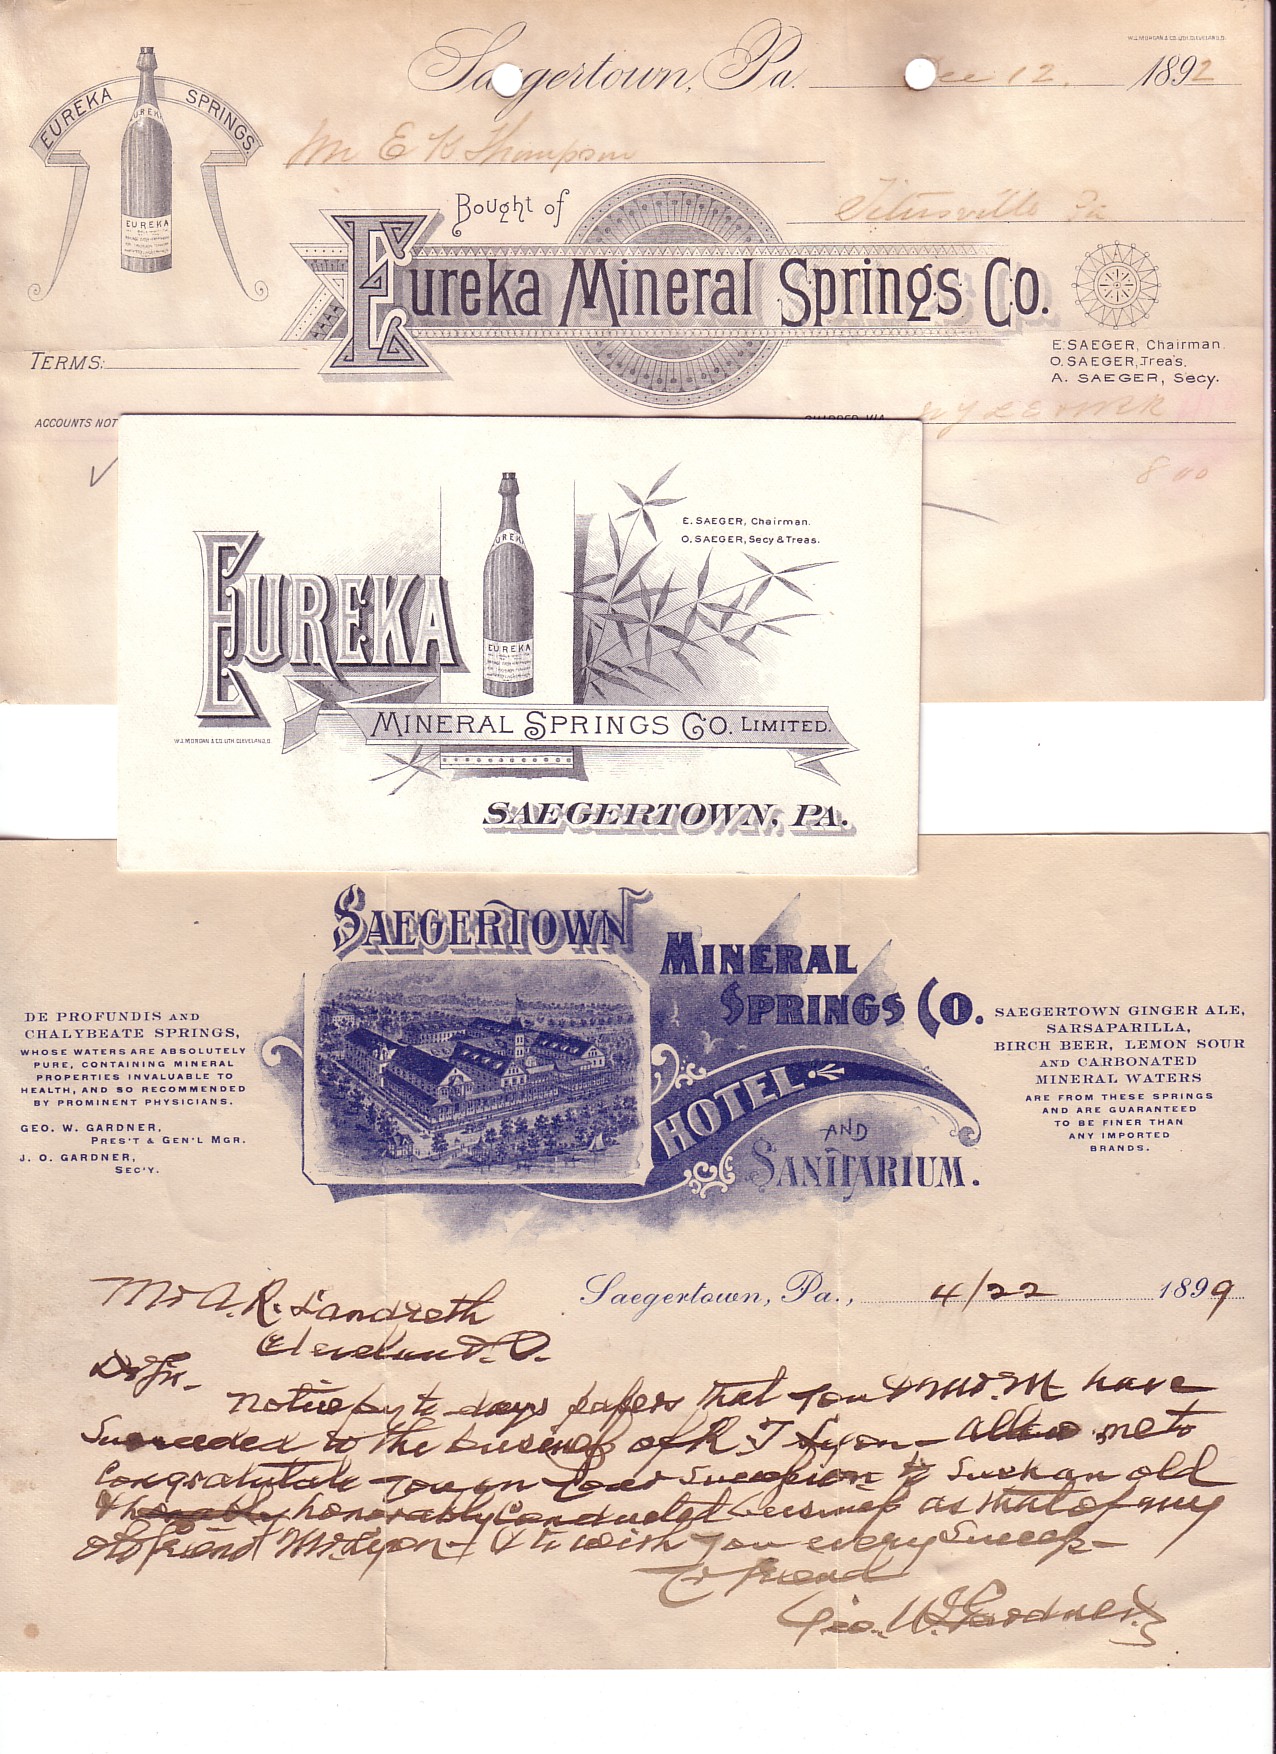 W.J. MORGAN & CO. LITH. CLEVELAND, O.
Saegertown, Pa. Dec 12, 1892
EUREKA SPRINGS.
Mr E K Thompson
EUREKA
Bought of
Titusville Pa
EUREKA
Eureka Mineral Springs Co.
E. SAEGER, Chairman.
O. SAEGER, Trea's.
A. SAEGER, Secy.
TERMS:
ACCOUNTS NOT
8 00
E. SAEGER, Chairman.
O. SAEGER, Secy & Treas.
EUREKA
EUREKA
EUREKA
MINERAL SPRINGS CO. LIMITED.
W.J. MORGAN & CO. LITH. CLEVELAND, O.
SAEGERTOWN, PA.
SAEGERTOWN
MINERAL
SPRINGS CO.
HOTEL
AND
SANITARIUM.
DE PROFUNDIS AND
CHALYBEATE SPRINGS,
WHOSE WATERS ARE ABSOLUTELY
PURE, CONTAINING MINERAL
PROPERTIES INVALUABLE TO
HEALTH, AND SO RECOMMENDED
BY PROMINENT PHYSICIANS.
GEO. W. GARDNER,
PRES'T & GEN'L MGR.
J. O. GARDNER,
SEC'Y.
SAEGERTOWN GINGER ALE,
SARSAPARILLA,
BIRCH BEER, LEMON SOUR
AND CARBONATED
MINERAL WATERS
ARE FROM THESE SPRINGS
AND ARE GUARANTEED
TO BE FINER THAN
ANY IMPORTED
BRANDS.
Saegertown, Pa., 4/22 1899
Mr A. R. Landreth
Cleveland. O.
Dr Sir-
Notice by to days papers that you & Mr M have
Succeeded to the business of R. T Lyon - Allow me to
Congratulate you on your Succession to Such an old
& honorably conducted business as that of my
old friend Mr Lyon - & to wish you every Success -
Yr friend
Geo. W. Gardner